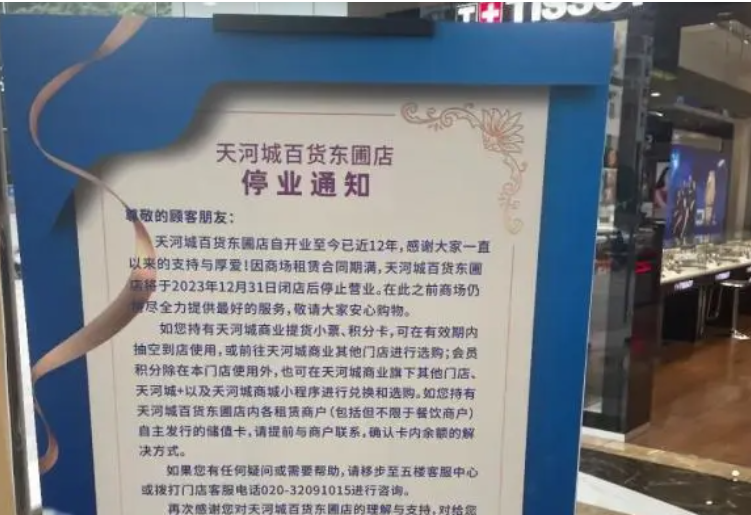 TISSOT
天河城百货东圃店
停业通知
尊敬的顾客朋友：
天河城百货东圃店自开业至今已近12年，感谢大家一直
以来的支持与厚爱！因商场租赁合同期满，天河城百货东圃
店将于2023年12月31日闭店后停止营业。在此之前商场仍
将尽全力提供最好的服务，敬请大家安心购物。
如您持有天河城商业提货小票、积分卡，可在有效期内
抽空到店使用，或前往天河城商业其他门店进行选购；会员
积分除在本门店使用外，也可在天河城商业旗下其他门店、
天河城+以及天河城商城小程序进行兑换和选购。如您持有
天河城百货东圃店内各租赁商户（包括但不限于餐饮商户）
自主发行的储值卡，请提前与商户联系，确认卡内余额的解
决方式。
如果您有任何疑问或需要帮助，请移步至五楼客服中心
或拨打门店客服电话020-32091015进行咨询。
再次感谢您对天河城百货东圃店的理解与支持，对给您